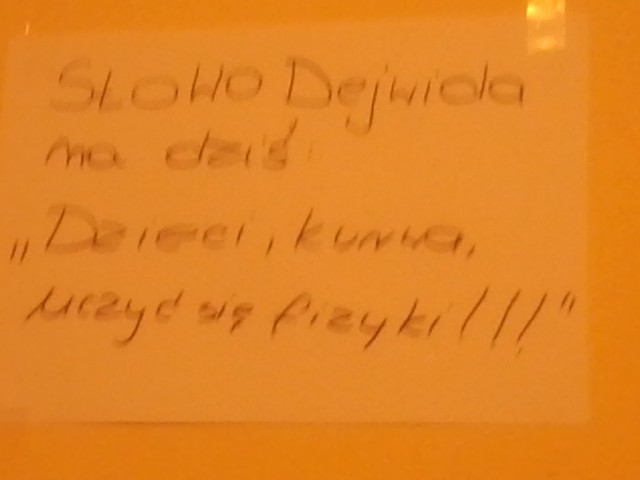 SŁOWO Dejwida
na dziś:
„Dzieci, kurwa,
uczyć się fizyki!!!"